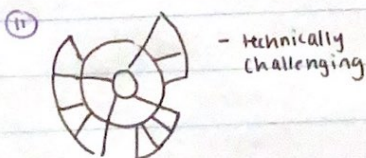 11
- technically
challenging